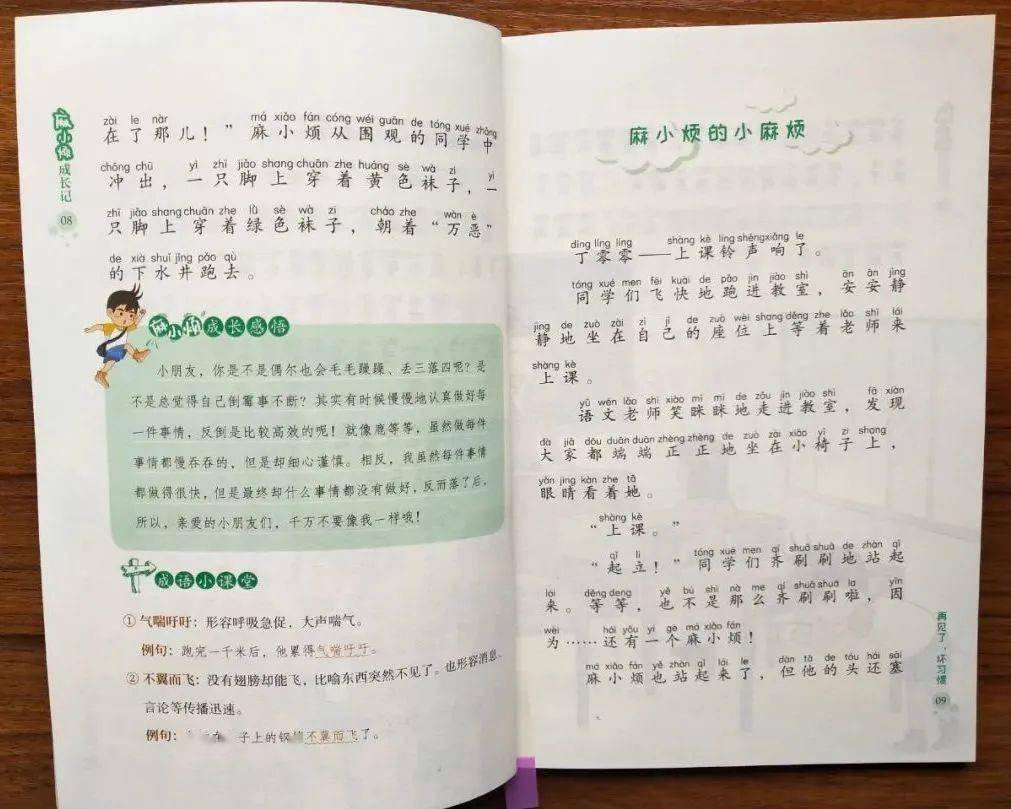 麻小烦成长记
08
zài le nàr má xiǎo fán cóng wéi guān de tóng xué zhōng
在了那儿！”麻小烦从围观的同学中
chōng chū yì zhī jiǎo shang chuān zhe huáng sè wà zi yì
冲出，一只脚上穿着黄色袜子，一
zhī jiǎo shang chuān zhe lǜ sè wà zi cháo zhe wàn è
只脚上穿着绿色袜子，朝着“万恶”
de xià shuǐ jǐng pǎo qù
的下水井跑去。
麻小烦成长感悟
小朋友，你是不是偶尔也会毛毛躁躁、丢三落四呢？是
不是总觉得自己倒霉事不断？其实有时候慢慢地认真做好每
一件事情，反倒是比较高效的呢！就像鹿等等，虽然做每件
事情都慢吞吞的，但是却细心谨慎。相反，我虽然每件事情
都做得很快，但是最终却什么事情都没有做好，反而落了后。
所以，亲爱的小朋友们，千万不要像我一样哦！
成语小课堂
①气喘吁吁：形容呼吸急促，大声喘气。
例句：跑完一千米后，他累得气喘吁吁。
②不翼而飞：没有翅膀却能飞，比喻东西突然不见了。也形容消息、
言论等传播迅速。
例句： 子上的钢 不翼而飞了。
麻小烦的小麻烦
dīng líng líng shàng kè líng shēng xiǎng le
丁零零——上课铃声响了。
tóng xué men fēi kuài de pǎo jìn jiào shì ān ān jìng
同学们飞快地跑进教室，安安静
jìng de zuò zài zì jǐ de zuò wèi shang děng zhe lǎo shī lái
静地坐在自己的座位上等着老师来
shàng kè
上课。
yǔ wén lǎo shī xiào mī mī de zǒu jìn jiào shì fā xiàn
语文老师笑眯眯地走进教室，发现
dà jiā dōu duān duān zhèng zhèng de zuò zài xiǎo yǐ zi shang
大家都端端正正地坐在小椅子上，
yǎn jing kàn zhe tā
眼睛看着她。
shàng kè
“上课。”
qǐ lì tóng xué men qí shuā shuā de zhàn qǐ
“起立！”同学们齐刷刷地站起
lái děng deng yě bú shì nà me qí shuā shuā la yīn
来。等等，也不是那么齐刷刷啦，因
wèi hái yǒu yí gè má xiǎo fán
为……还有一个麻小烦！
má xiǎo fán yě zhàn qǐ lái le dàn tā de tóu hái sāi
麻小烦也站起来了，但他的头还塞
再见了，坏习惯
09